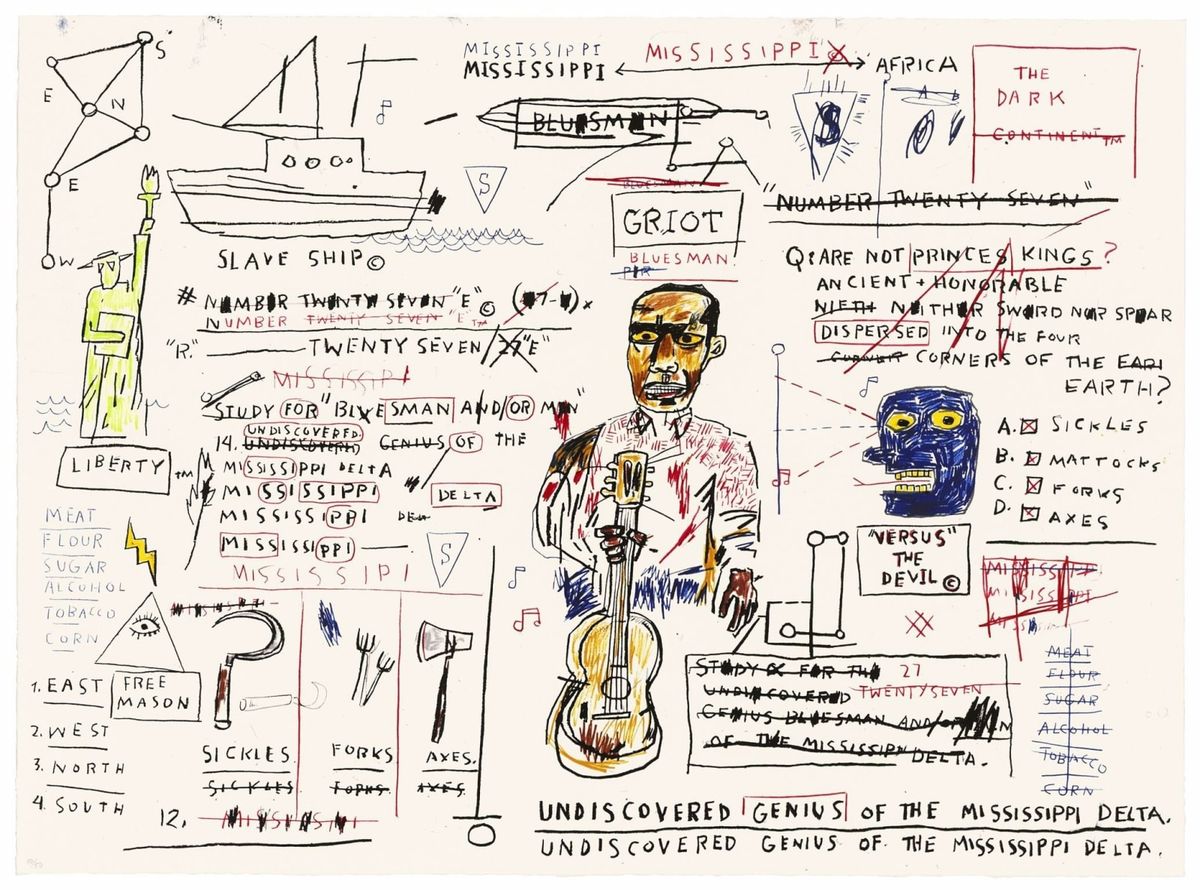 S
E
N
E
W
MISSISSIPPI
MISSISSIPPI
MISSISSIPPI
AFRICA
THE
DARK
CONTINENT™
S
A B
BLUESMAN
S
"NUMBER TWENTY SEVEN"
SLAVE SHIP©
BLUESMAN
GRIOT
BLUESMAN
# NUMBER TWENTY SEVEN "E"©
NUMBER TWENTY SEVEN "E"™
"R." TWENTY SEVEN / 27 "E"
Q: ARE NOT PRINCES KINGS?
ANCIENT + HONORABLE
NIETH NEITHER SWORD NOR SPEAR
DISPERSED INTO THE FOUR
CORNER CORNERS OF THE EARI
EARTH?
MISSISSIPI
STUDY FOR "BLUESMAN AND/OR MAN"
UNDISCOVERED
14. UNDISCOVERED GENIUS OF THE
MISSISSIPPI DELTA
MISSISSIPPI
DELTA
MISSISSIPPI
MISSISSIPPI
MISSISSIPI
S
LIBERTY™
A. SICKLES
B. MATTOCKS
C. FORKS
D. AXES
"VERSUS"
THE
DEVIL©
MEAT
FLOUR
SUGAR
ALCOHOL
TOBACCO
CORN
FREE
MASON
1. EAST
2. WEST
3. NORTH
4. SOUTH
SICKLES
SICKLES
FORKS
FORKS
AXES.
AXES.
12. MISSISSIPPI
STUDY FOR THE 27
UNDISCOVERED TWENTY SEVEN
GENIUS BLUESMAN AND/OR MAN
OF THE MISSISSIPPI DELTA.
MISSISSIPPI
MISSISSIPPI
MEAT
FLOUR
SUGAR
ALCOHOL
TOBACCO
CORN
UNDISCOVERED GENIUS OF THE MISSISSIPPI DELTA.
UNDISCOVERED GENIUS OF THE MISSISSIPPI DELTA.